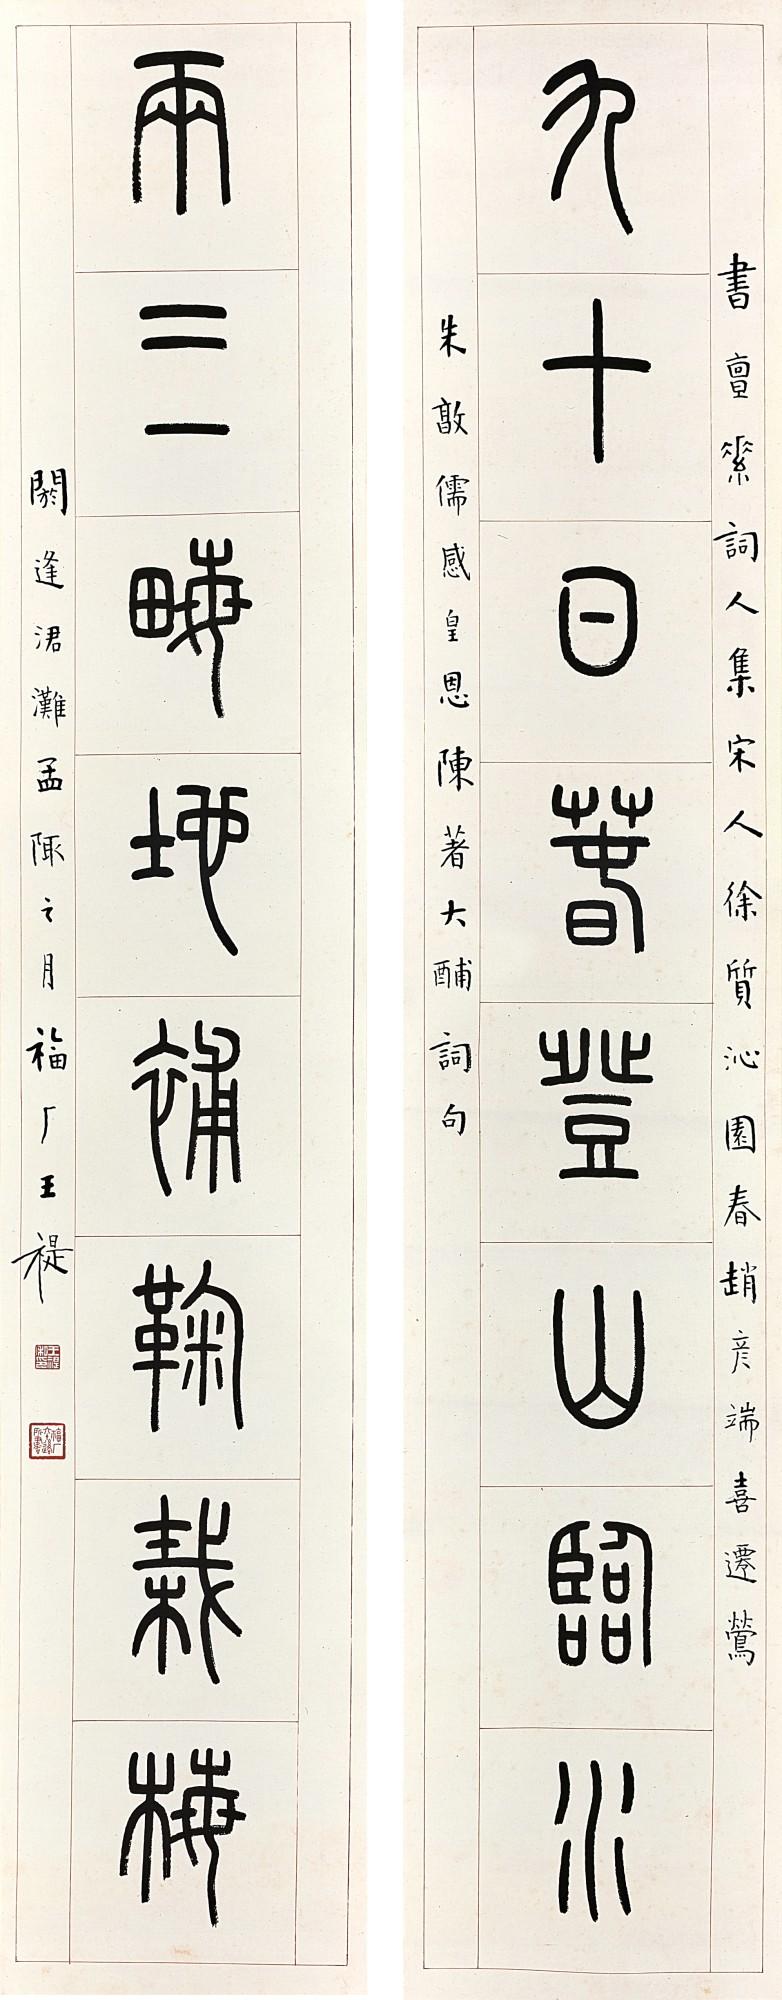 九十日萅登山臨水
書亶素詞人集宋人徐質沁園春趙彥端喜遷鶯
朱敦儒感皇恩陳著大酺詞句
兩三畮地補鞠栽梅
閼逢涒灘孟陬之月福厂王禔